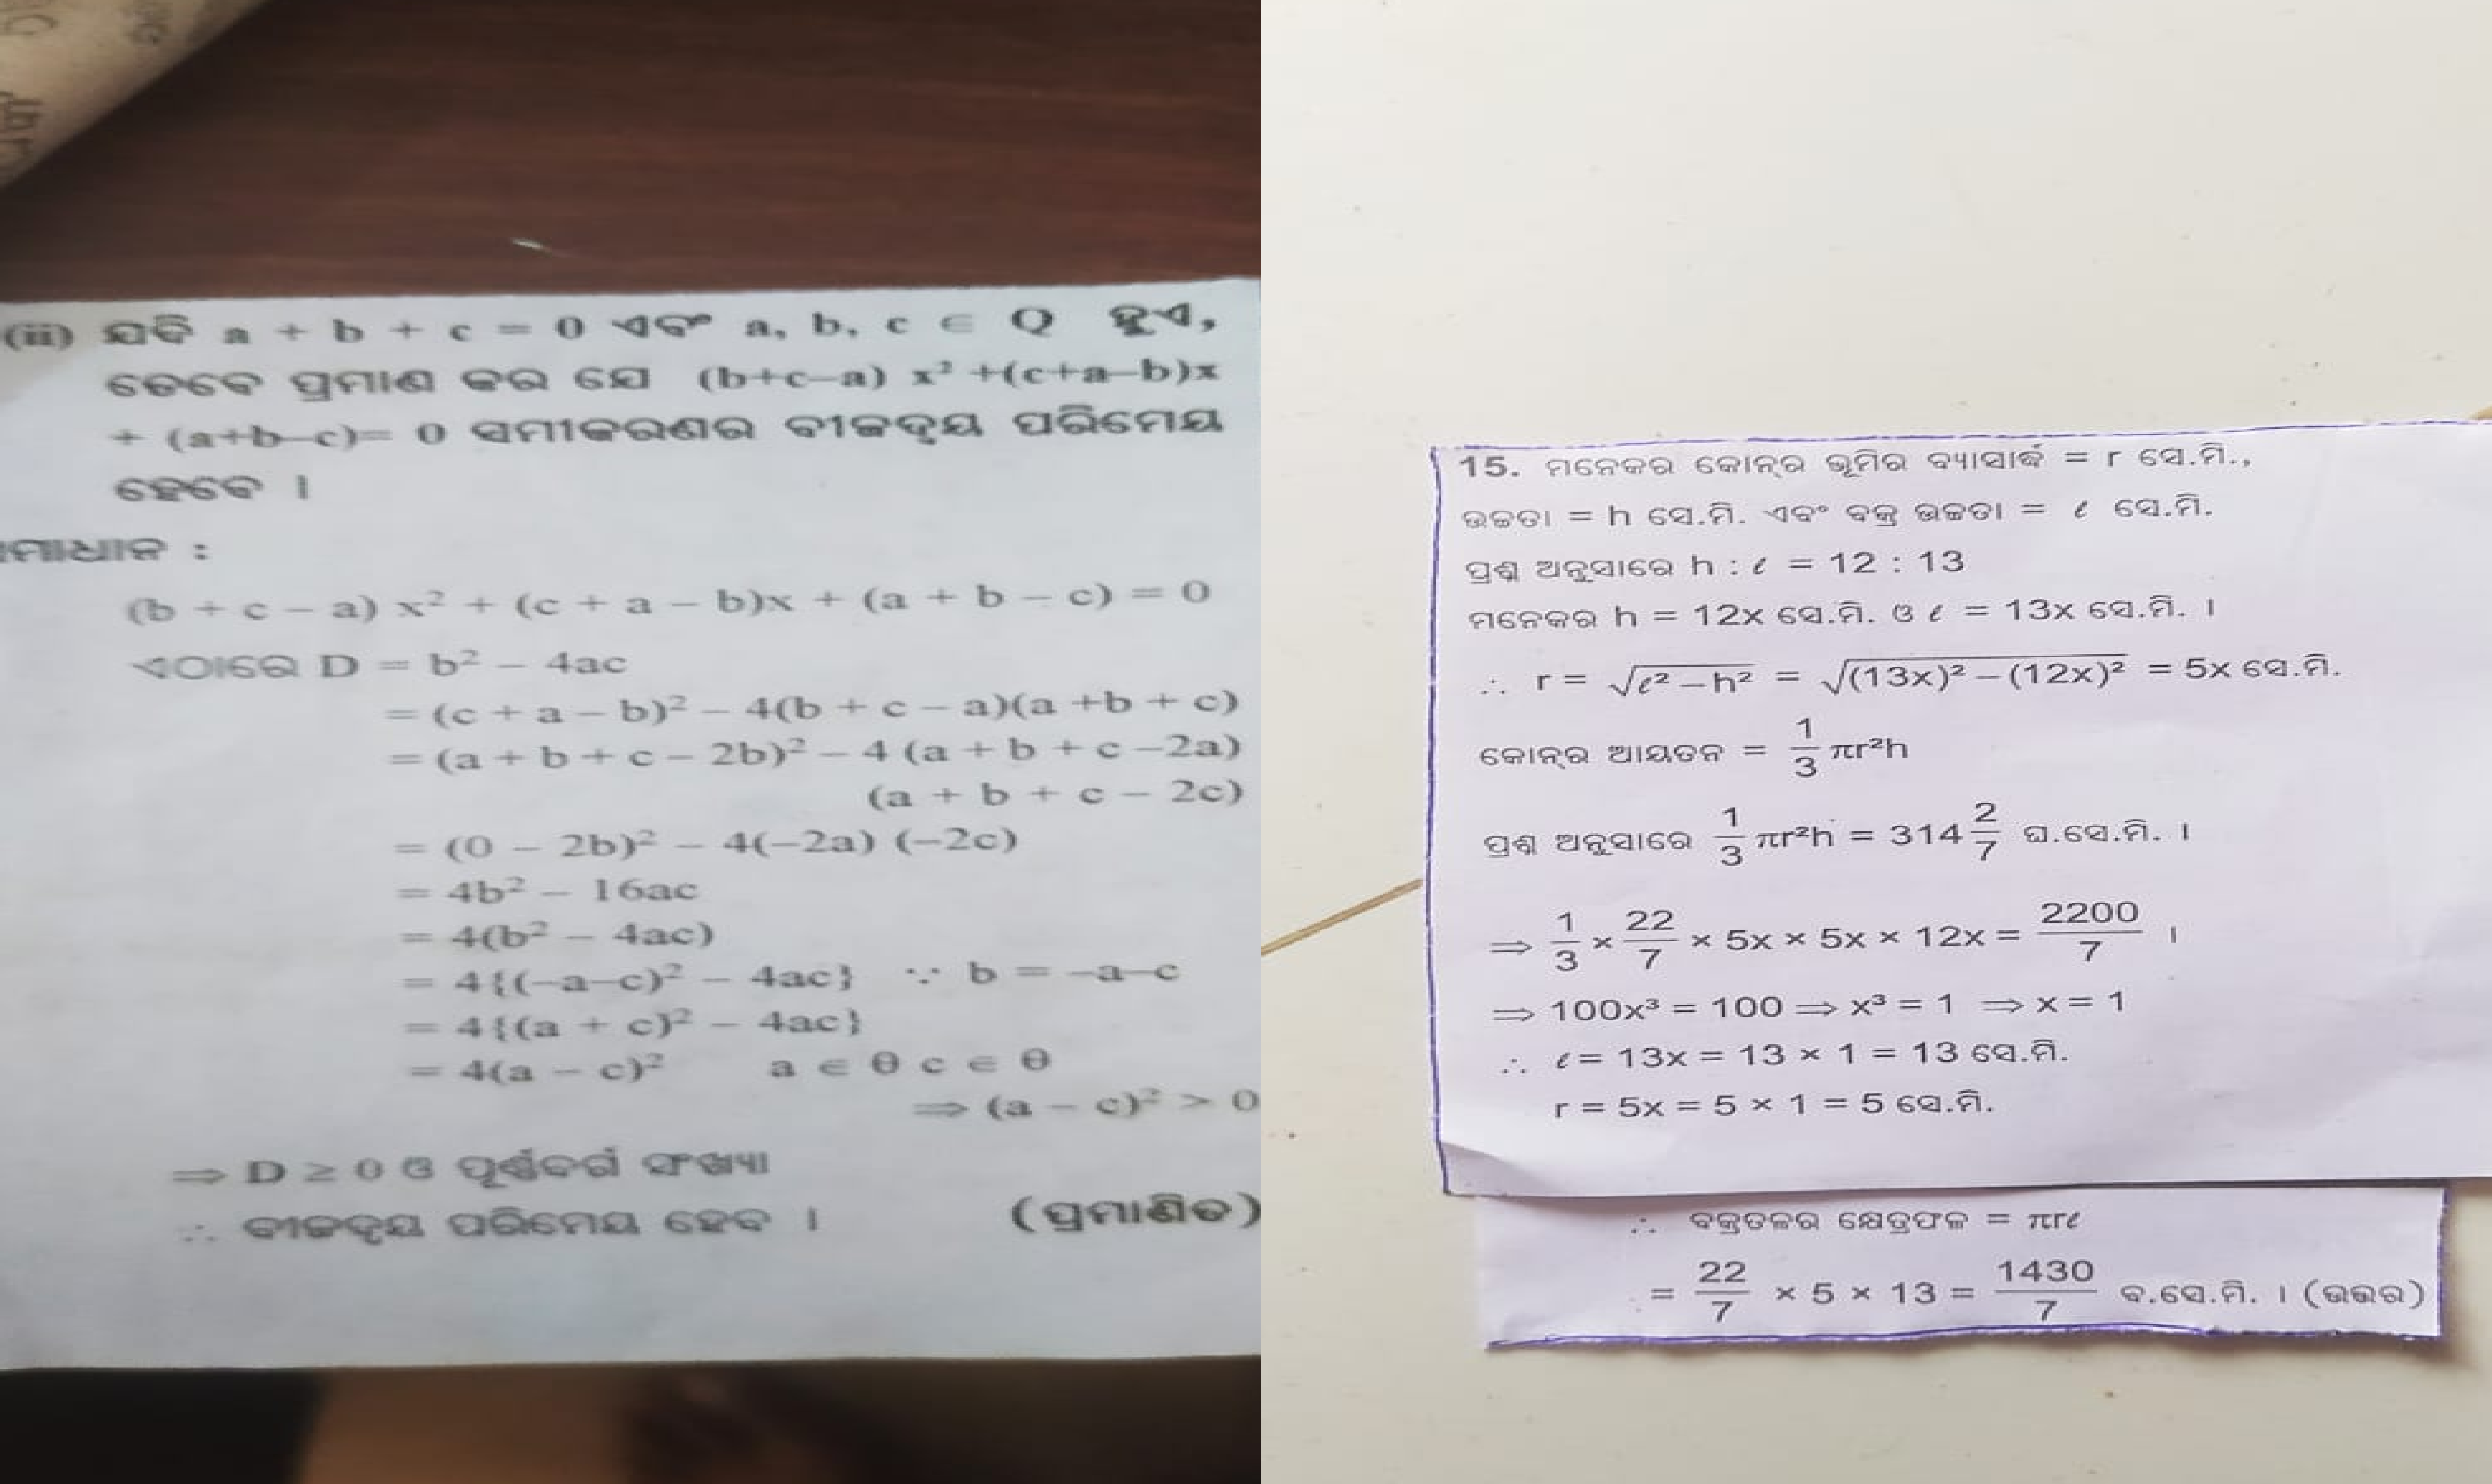 (ii) ଯଦି a + b + c = 0 ଏବଂ a, b, c ∈ Q ହୁଏ,
ତେବେ ପ୍ରମାଣ କର ଯେ (b+c–a) x² +(c+a–b)x
+ (a+b–c)= 0 ସମୀକରଣର ବୀଜଦ୍ୱୟ ପରିମେୟ
ହେବେ ।
ମାଧାନ :
(b + c – a) x² + (c + a – b)x + (a + b – c) = 0
ଏଠାରେ D = b² – 4ac
= (c + a – b)² – 4(b + c – a)(a +b + c)
= (a + b + c – 2b)² – 4 (a + b + c –2a)
(a + b + c – 2c)
= (0 – 2b)² – 4(–2a) (–2c)
= 4b² – 16ac
= 4(b² – 4ac)
= 4{(–a–c)² – 4ac} ∵ b = –a–c
= 4{(a + c)² – 4ac}
= 4(a – c)² a ∈ θ c ∈ θ
⇒ (a – c)² > 0
⇒ D ≥ 0 ଓ ପୂର୍ଣ୍ଣବର୍ଗ ସଂଖ୍ୟା
∴ ବୀଜଦ୍ୱୟ ପରିମେୟ ହେବ । (ପ୍ରମାଣିତ)
15. ମନେକର କୋନ୍‌ର ଭୂମିର ବ୍ୟାସାର୍ଦ୍ଧ = r ସେ.ମି.,
ଉଚ୍ଚତା = h ସେ.ମି. ଏବଂ ବକ୍ର ଉଚ୍ଚତା = ℓ ସେ.ମି.
ପ୍ରଶ୍ନ ଅନୁସାରେ h : ℓ = 12 : 13
ମନେକର h = 12x ସେ.ମି. ଓ ℓ = 13x ସେ.ମି. ।
∴ r = √(ℓ² – h²) = √((13x)² – (12x)²) = 5x ସେ.ମି.
କୋନ୍‌ର ଆୟତନ = 1/3 πr²h
ପ୍ରଶ୍ନ ଅନୁସାରେ 1/3 πr²h = 314 2/7 ଘ.ସେ.ମି. ।
⇒ 1/3 × 22/7 × 5x × 5x × 12x = 2200/7 ।
⇒ 100x³ = 100 ⇒ x³ = 1 ⇒ x = 1
∴ ℓ = 13x = 13 × 1 = 13 ସେ.ମି.
r = 5x = 5 × 1 = 5 ସେ.ମି.
∴ ବକ୍ରତଳର କ୍ଷେତ୍ରଫଳ = πrℓ
= 22/7 × 5 × 13 = 1430/7 ବ.ସେ.ମି. । (ଉତ୍ତର)